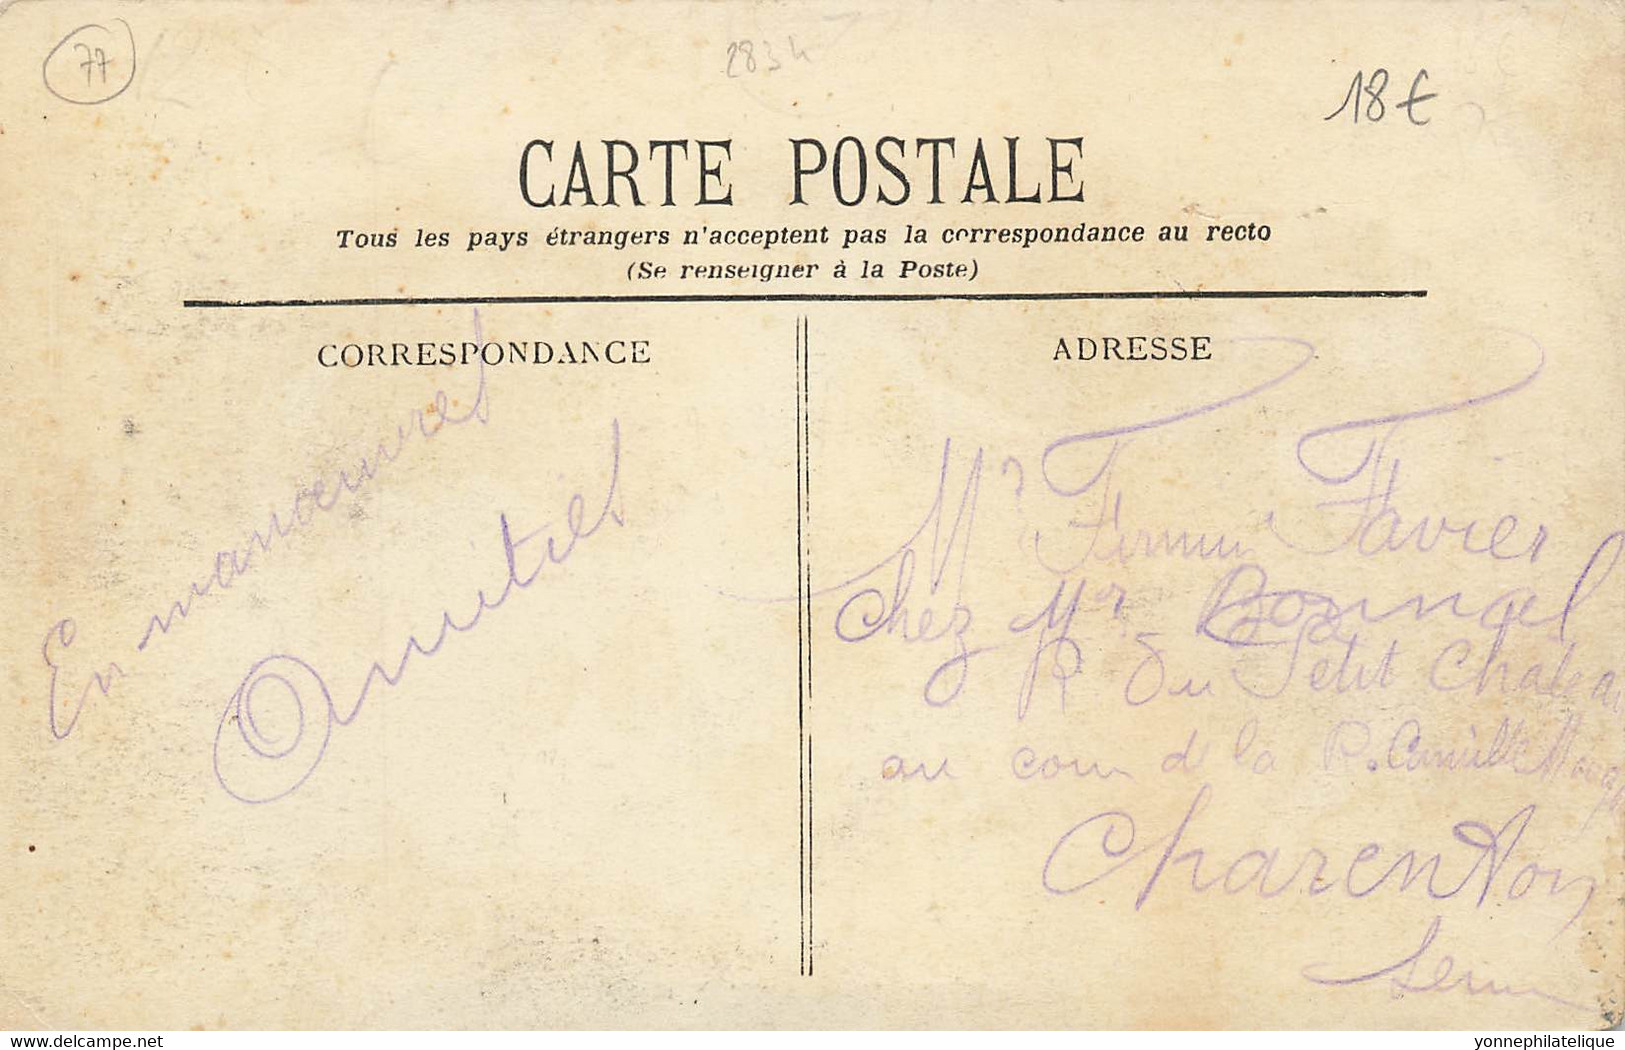 77
2834
18€
CARTE POSTALE
Tous les pays étrangers n'acceptent pas la correspondance au recto
(Se renseigner à la Poste)
CORRESPONDANCE
ADRESSE
En manœuvres
Amitiés
Mr Firmin Favier
Chez Mr Bonnal
R du Petit Chateau
au coin d la R. Camille
Charenton
Seine
delcampe.net
yonnephilatelique